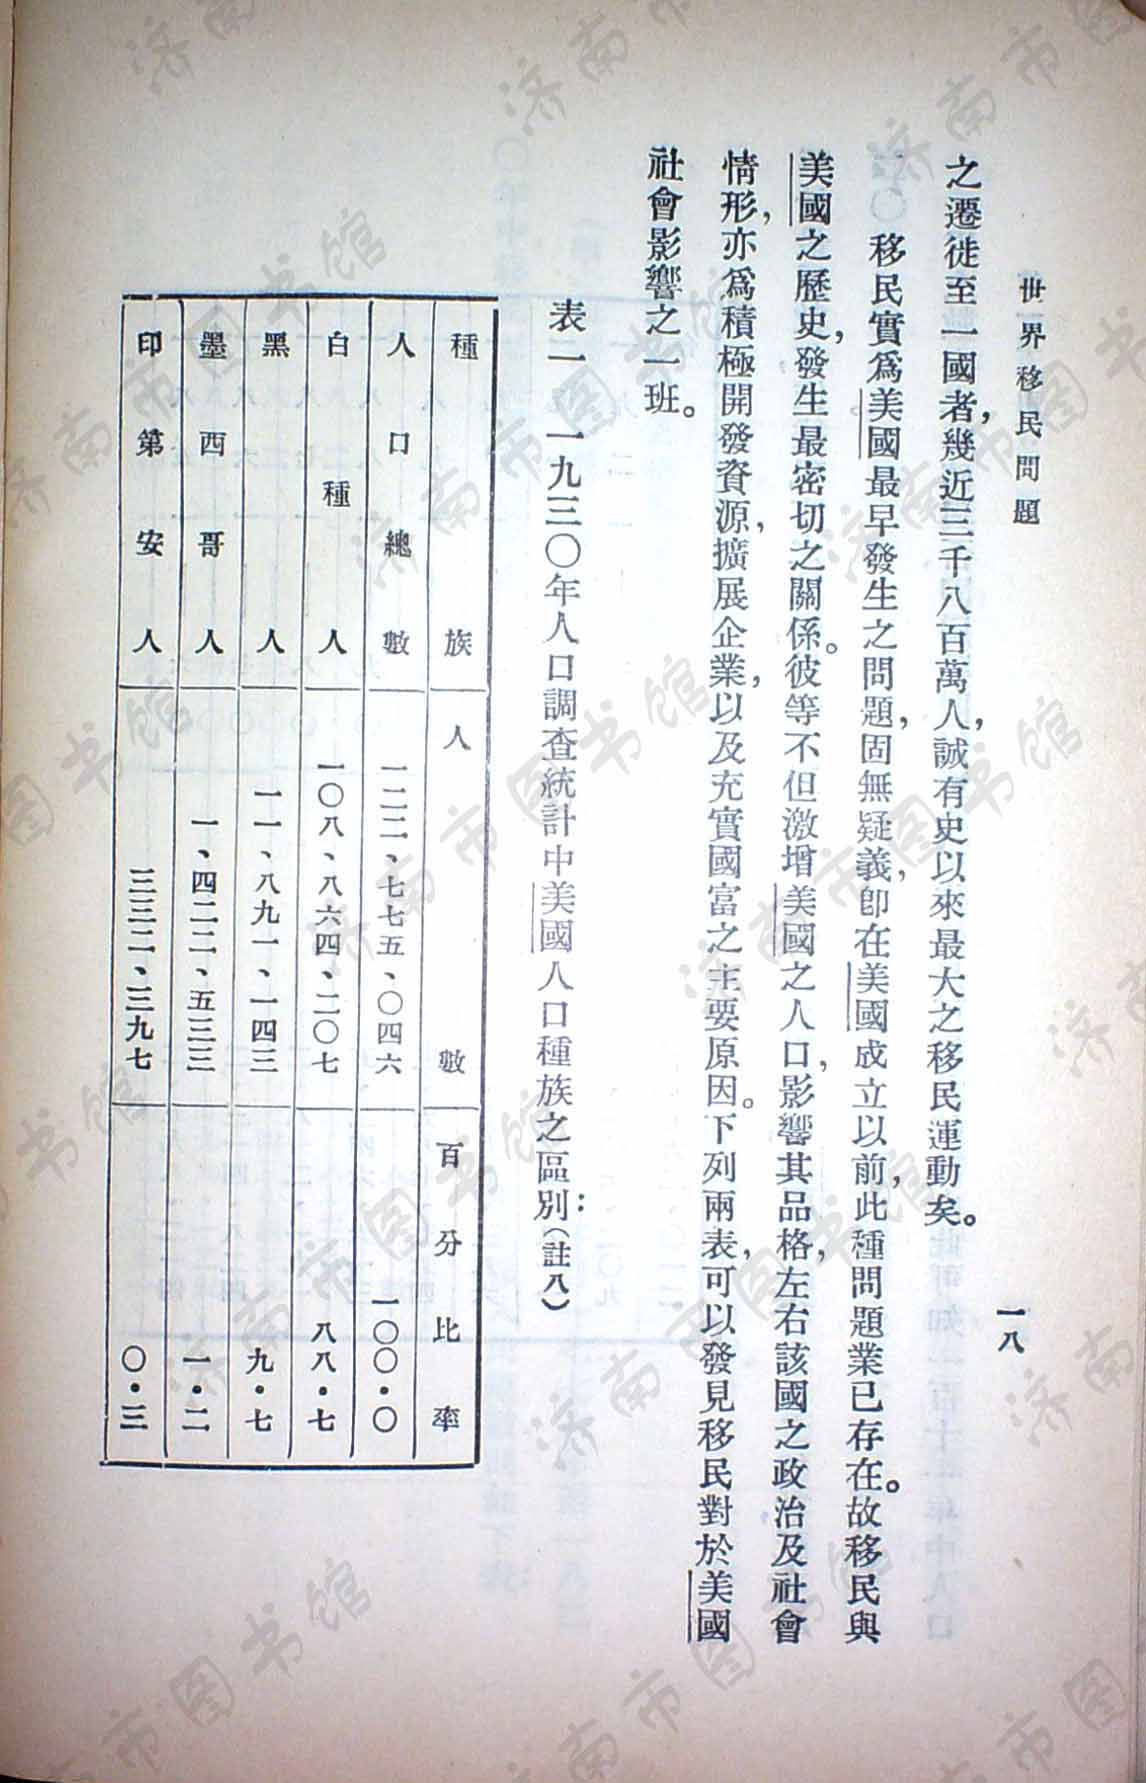 世界移民問題
一八
之遷徙至一國者，幾近三千八百萬人，誠有史以來最大之移民運動矣。
移民實爲美國最早發生之問題，固無疑義，卽在美國成立以前，此種問題業已存在。故移民與
美國之歷史，發生最密切之關係。彼等不但激增美國之人口，影響其品格，左右該國之政治及社會
情形，亦爲積極開發資源，擴展企業，以及充實國富之主要原因。下列兩表，可以發見移民對於美國
社會影響之一班。
表一 一九三〇年人口調查統計中美國人口種族之區別：（註八）
種族 人數 百分比率
人口總數 一二二、七七五、〇四六 一〇〇・〇
白種人 一〇八、八六四、二〇七 八八・七
黑人 一一、八九一、一四三 九・七
墨西哥人 一、四二二、五三三 一・二
印第安人 三三二、三九七 〇・三
济南市图书馆